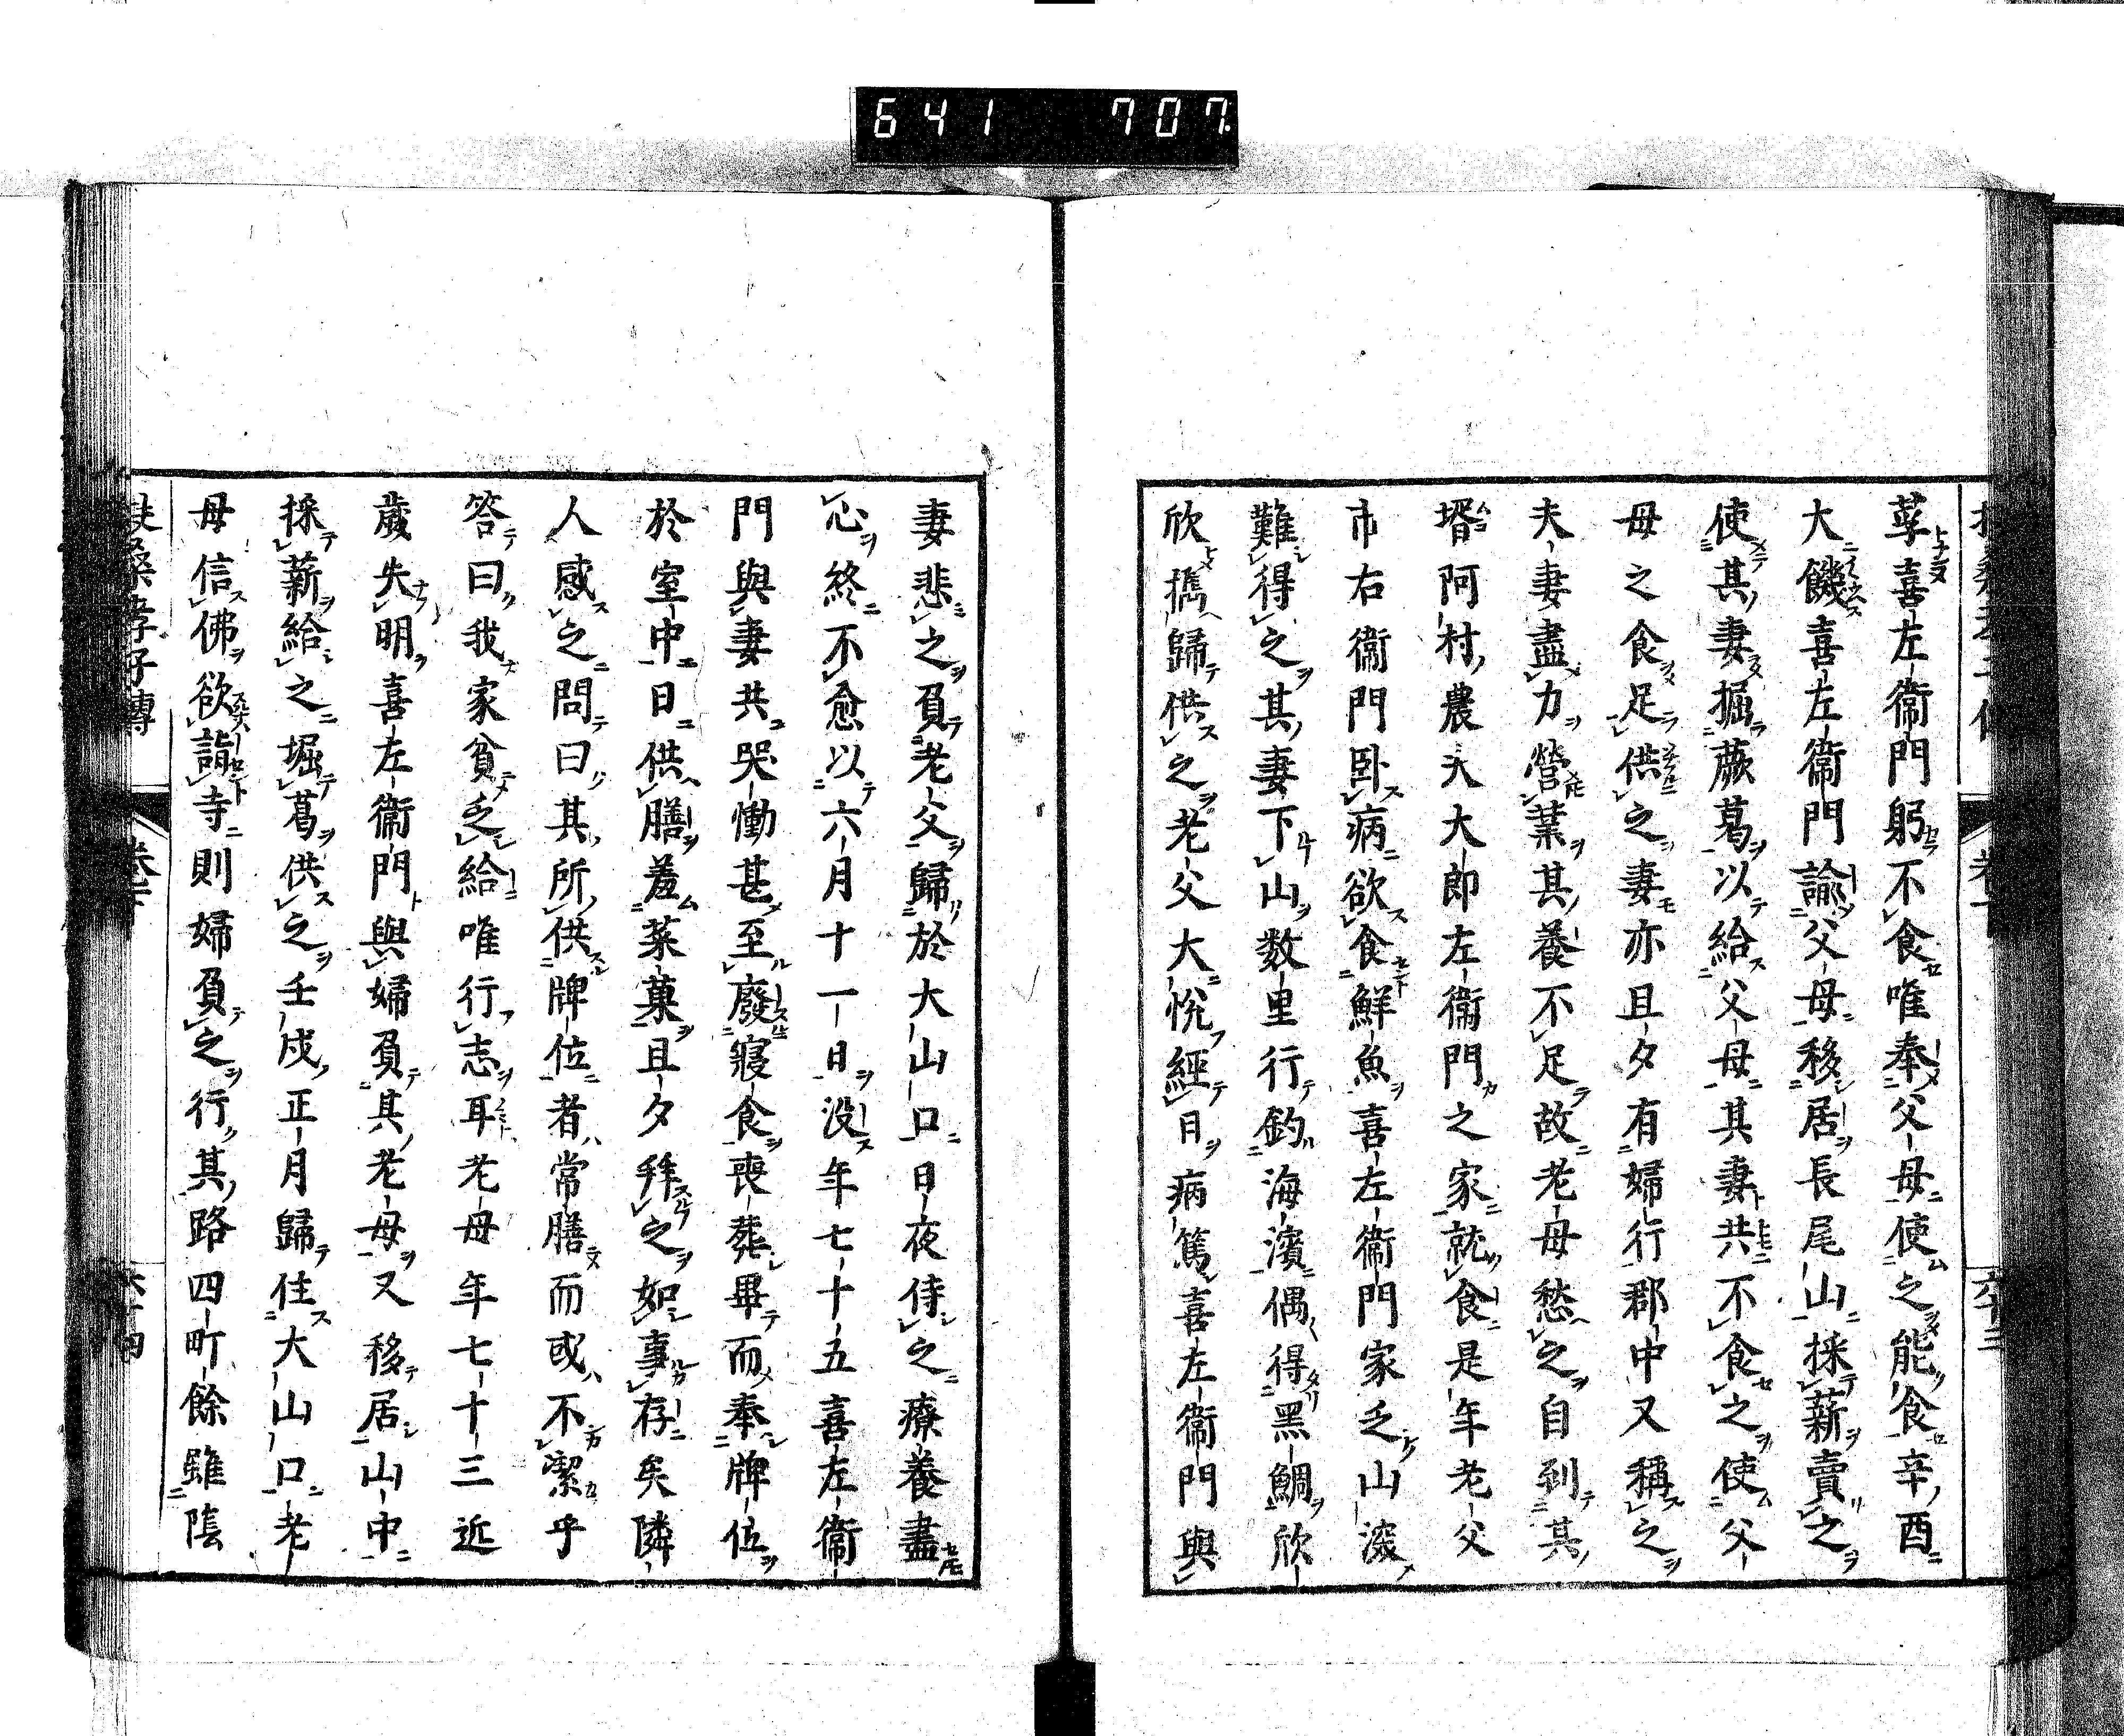 641 707
莩喜左衞門躬不食唯奉父母使之能食辛酉
大饑喜左衞門諭父母移居長尾山採薪賣之
使其妻掘蕨葛以給父母其妻共不食之使父
母之食足供之妻亦且夕有婦行郡中又稱之
夫妻盡力營業其養不足故老母愁之自到其
壻阿村農夫大郎左衞門之家就食是年老父
市右衞門卧病欲食鮮魚喜左衞門家乏山深
難得之其妻下山数里行釣海濱偶得黑鯛欣
欣攜歸供之老父大悅經日病篤喜左衞門與
妻悲之負老父歸於大山口日夜侍之療養盡
心終不愈以六月十一日没年七十五喜左衞
門與妻共哭慟甚至廢寢食喪葬畢而奉牌位
於室中日供膳羞菜菓且夕拜之如事存矣隣
人感之問曰其所供牌位者常膳而或不潔乎
答曰我家貧乏給唯行志耳老母年七十三近
歲失明喜左衞門與婦負其老母又移居山中
採薪給之堀葛供之壬戌正月歸住大山口老
母信佛欲詣寺則婦負之行其路四町餘雖陰
扶桑孝子傳